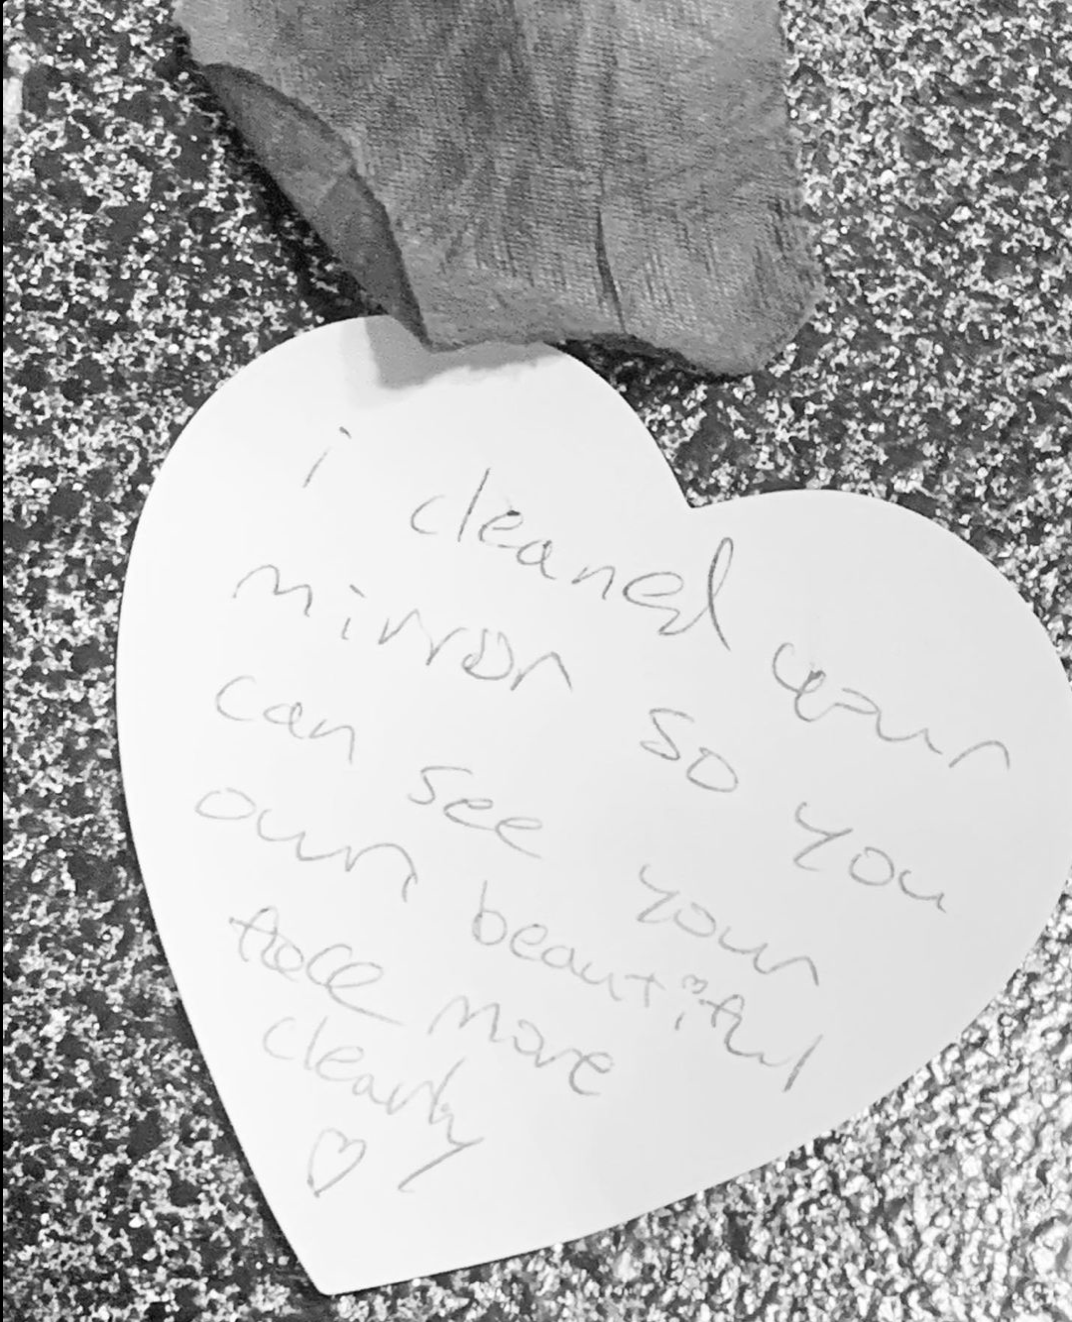 i cleaned your
mirror so you
can see your
own beautiful
face more
clearly
♡